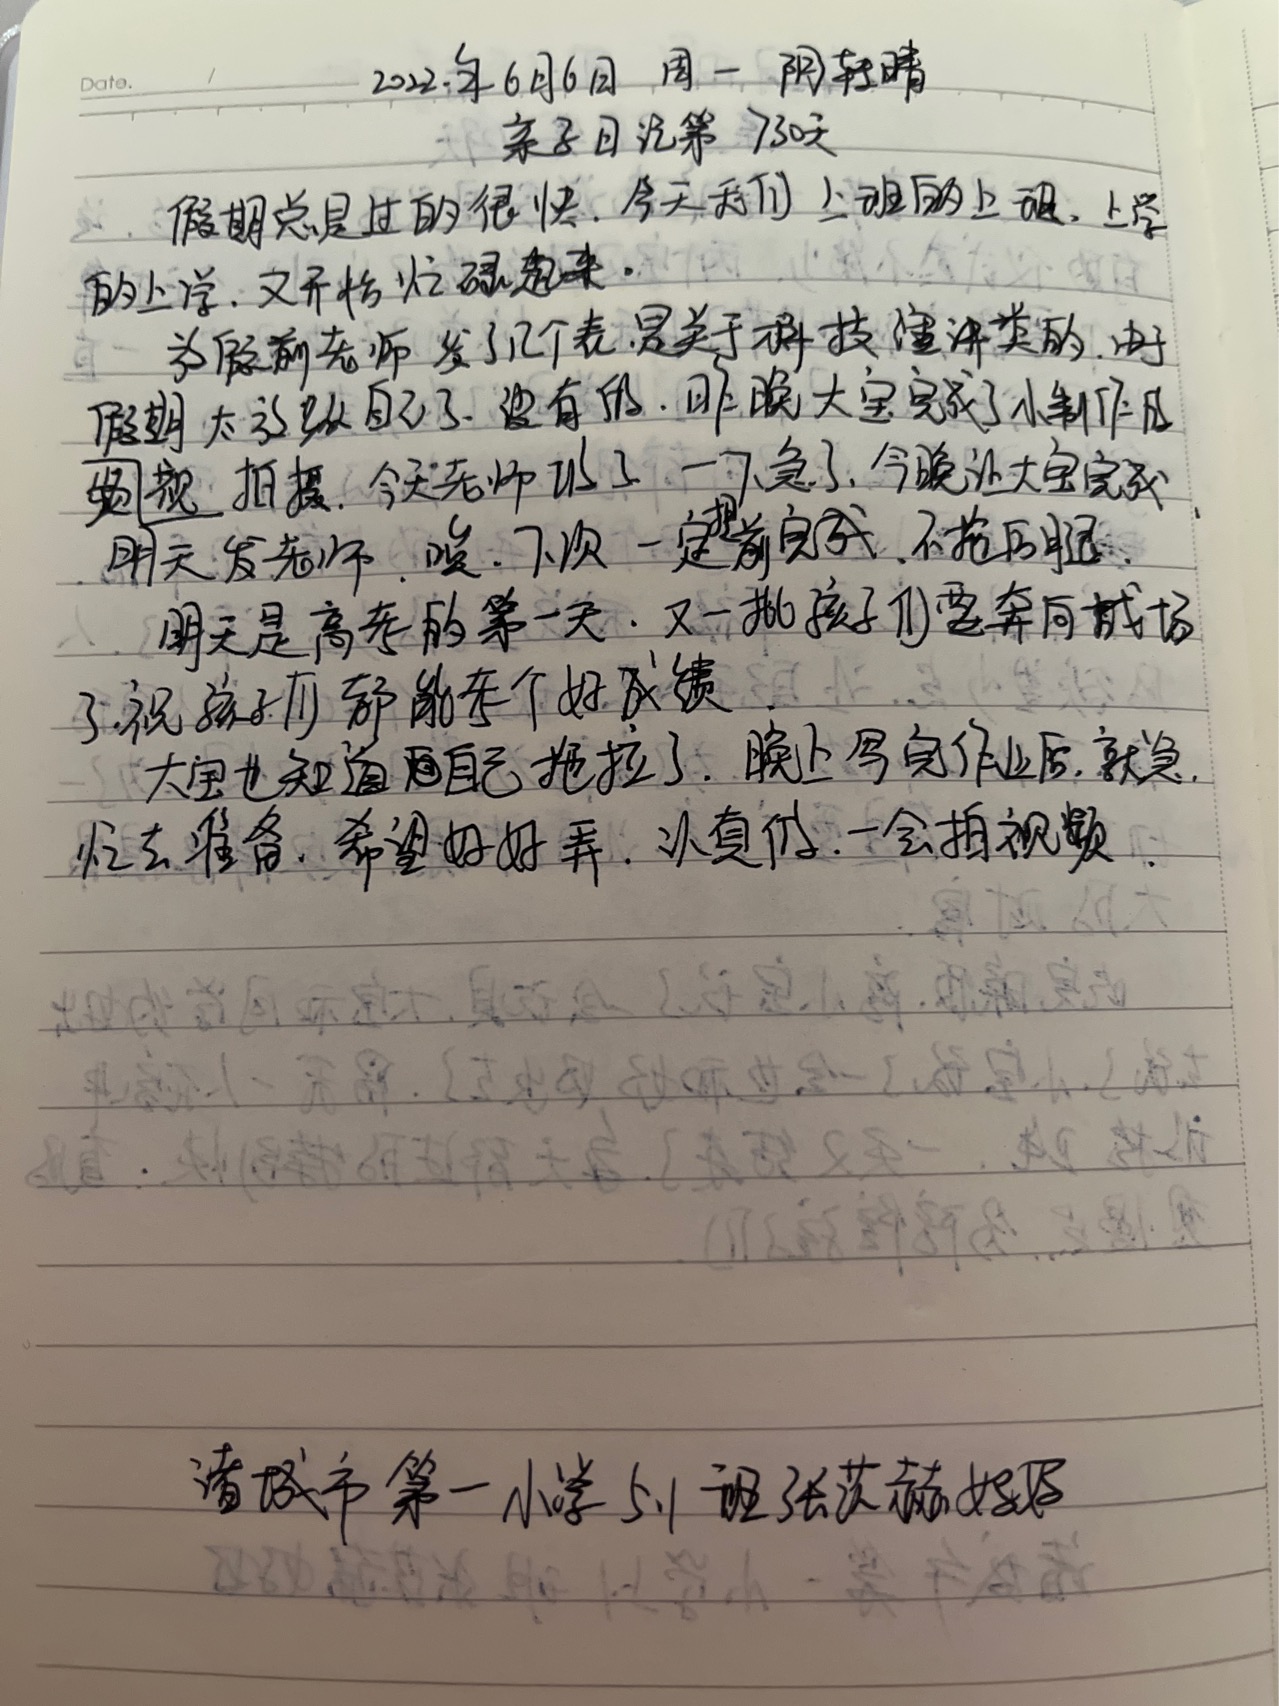 Date. /
2022.年6月6日 周一 阴转晴
亲子日记第730天
假期总是过的很快.今天我们上班的上班.上学
的上学.又开始忙碌起来.
放假前老师发了几个表.是关于科技 类的.由于
假期太放纵自己了.没有 .昨晚大宝完成了小制作及
视 拍摄.今天老师 了 一下急了.今晚让大宝完成
明天发老师.唉.下次一定提前完成.不拖后腿.
明天是高考的第一天.又一批孩子们要奔向战场
了.祝孩子们都能考个好成绩.
大宝也知道 自己拖拉了.晚上写完作业后.就急.
忙去准备.希望好好弄.认真做.一会拍视频.
诸城市第一小学5.1班张 赫妈妈